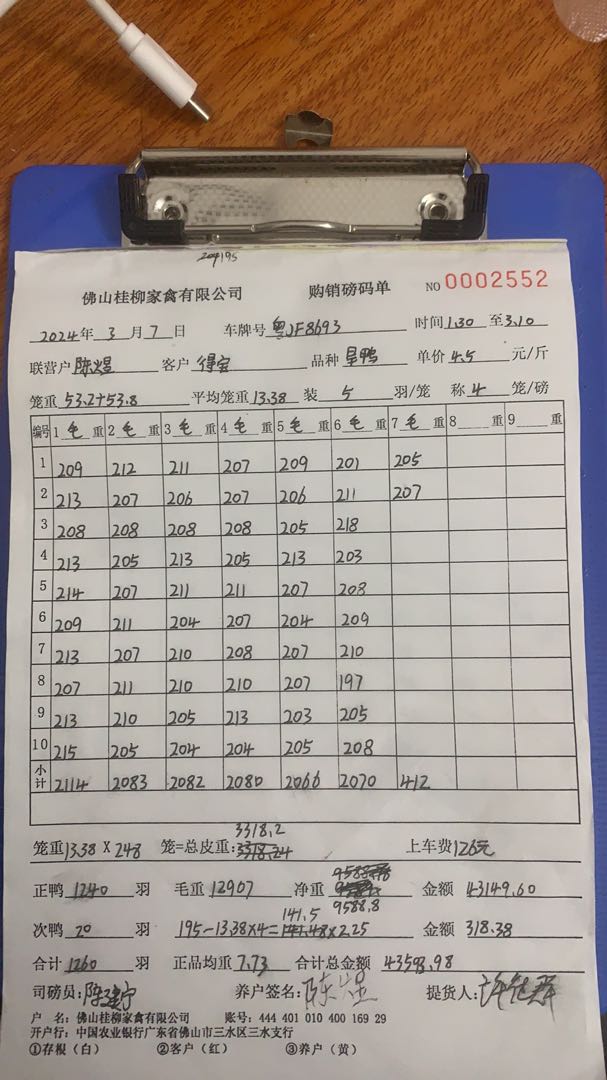 204195
佛山桂柳家禽有限公司 购销磅码单 NO 0002552
2024年 3 月 7 日 车牌号 粤JF8693 时间 1.30 至 3.10
联营户 陈煜 客户 得宝 品种 旱鸭 单价 4.5 元/斤
笼重 53.2+53.8 平均笼重 13.38 装 5 羽/笼 称 4 笼/磅
编号 1 毛 重 2 毛 重 3 毛 重 4 毛 重 5 毛 重 6 毛 重 7 毛 重 8 重 9 重
1 209 212 211 207 209 201 205
2 213 207 206 207 206 211 207
3 208 208 208 208 205 218
4 213 205 213 205 213 203
5 214 207 211 211 207 208
6 209 211 204 207 204 209
7 213 207 210 208 207 210
8 207 211 210 210 207 197
9 213 210 205 213 203 205
10 215 205 204 204 205 208
小计 2114 2083 2082 2080 2066 2070 412
3318.2
笼重 13.38 X 248 笼=总皮重: 3318.24 上车费 126元
正鸭 1240 羽 毛重 12907 净重 9588.8 金额 43149.60
141.5
次鸭 20 羽 195-13.38×4=141.48×2.25 金额 318.38
合计 1260 羽 正品均重 7.73 合计总金额 43598.98
司磅员: 养户签名: 提货人:
户 名: 佛山桂柳家禽有限公司 账号: 444 401 010 400 169 29
开户行: 中国农业银行广东省佛山市三水区三水支行
①存根（白） ②客户（红） ③养户（黄）